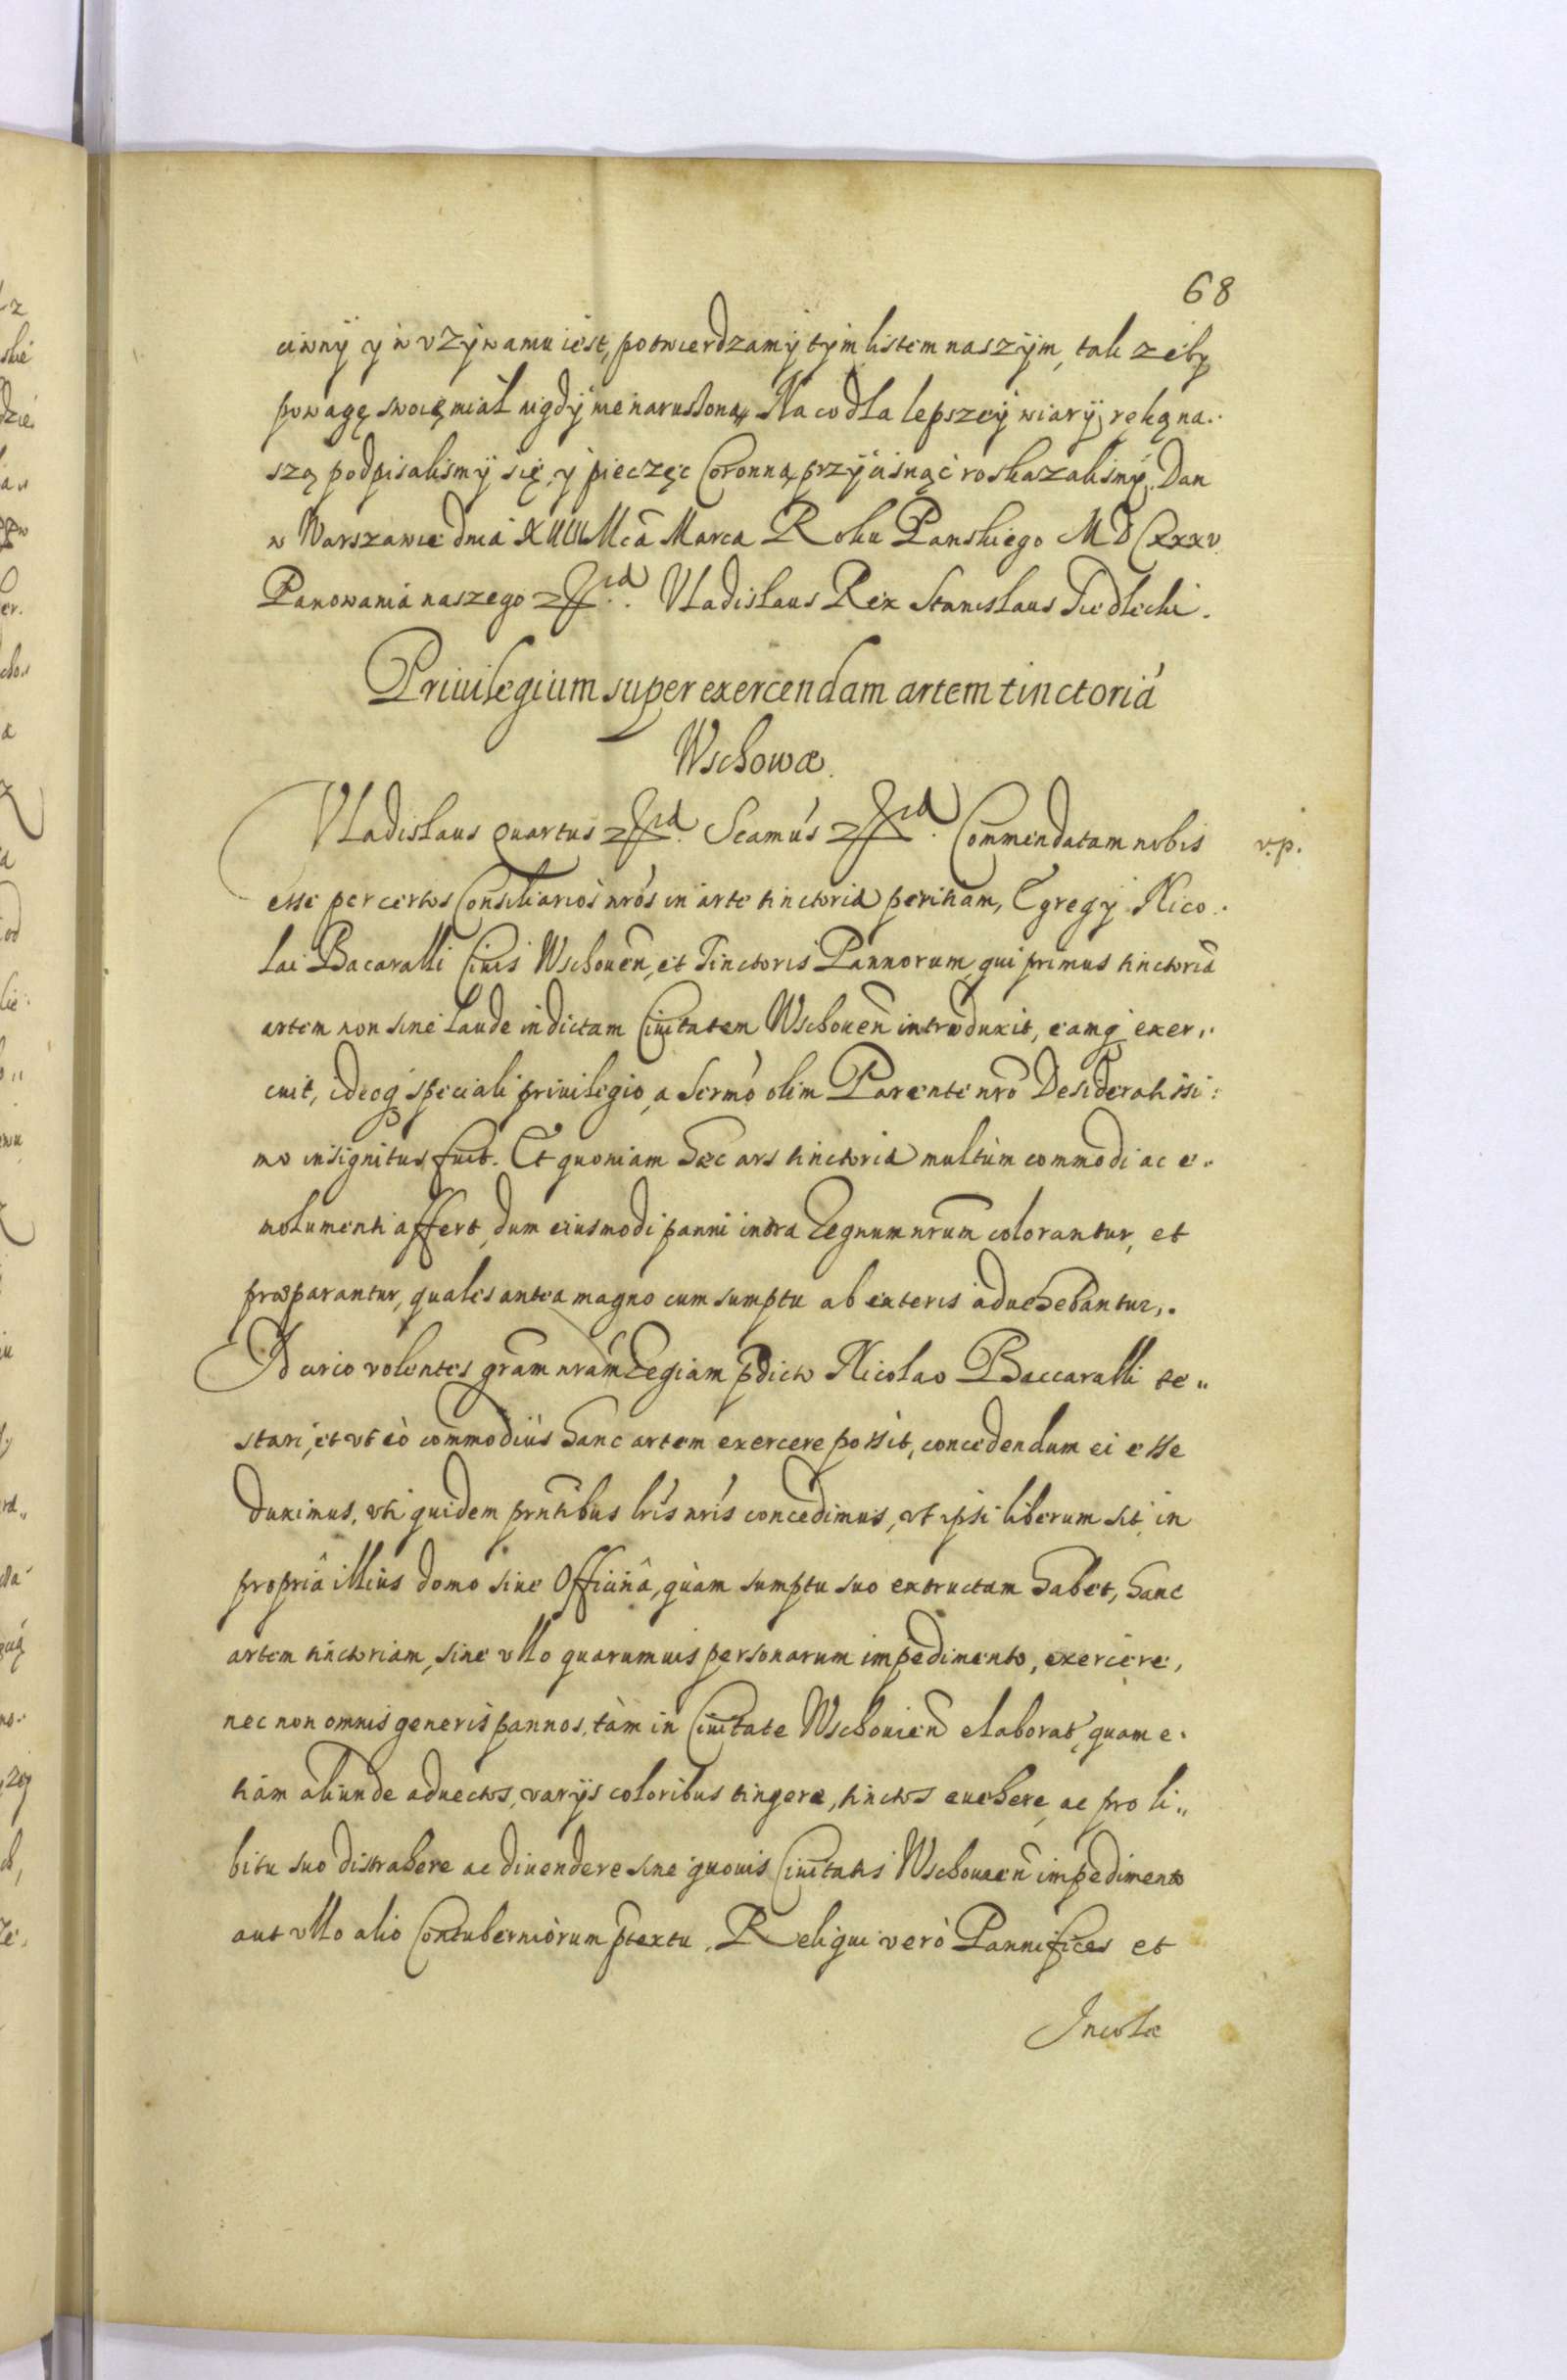 68
ciwny y w vzywaniu iest, potwierdzamy tym listem naszym, tak zeby
powagę swoię miał nigdy nienarusoną. Na co dla lepszey wiary ręką na..
szą podpisalismy się, y pieczęc Coronną przycisnąć roskazalismy. Dan
w Warszawie dnia Mcā Marca Roku Panskiego MDCXXXV
Panowania naszego Vladislaus Rex Stanislaus Siedlecki.
Priuilegium super exercendam artem tinctoriā
Wschowæ.
Vladislaus quartus Seamūs Commendatam nobis
v.p.
esse per certos Consiliarios nrōs in arte tinctoria peritiam, Egregy Nico..
lai Bacaralli Ciuis Wschouen̄, et Tinctoris Pannorum, qui primus tinctoriā
artem non sine laude in dictam Ciuitatem Wschouen̄ introduxit, eamq exer..
cuit, ideoq speciali priuilegio, a Sermō olim Parente nrō Desideratissi:
mo insignitus fuit. Et quoniam hæc ars tinctoria multùm commodi ac e..
molumenti affert, dum eiusmodi panni intra Regnum nrum̄ colorantur, et
præparantur, quales antea magno cum sumptu ab exteris aduehebantur,.
Id circo volentes gram̄ nram̄ Regiam pdicto Nicolao Baccaralli te..
stari, et vt eò commodiùs hanc artem exercere possit, concedendum ei esse
duximus, vti quidem prntibus lrīs nrīs concedimus, vt ipsi liberum sit, in
propriâ illius domo siue Officinâ, quàm sumptu suo extructam habet, hanc
artem tinctoriam, sine vllo quarumuis personarum impedimento, exercere,
nec non omnis generis pannos, tàm in Ciuitate Wschouien̄ elaborat, quam e.
tiam aliunde aduectos, varijs coloribus tingere, tinctos euehere, ac pro li..
bitu suo distrahere ac diuendere sine quouis Ciuitatis Wschouien̄ impedimento
aut vllo alio Contuberniorum ptextu. Reliqui verò Pannifices et
Incolæ